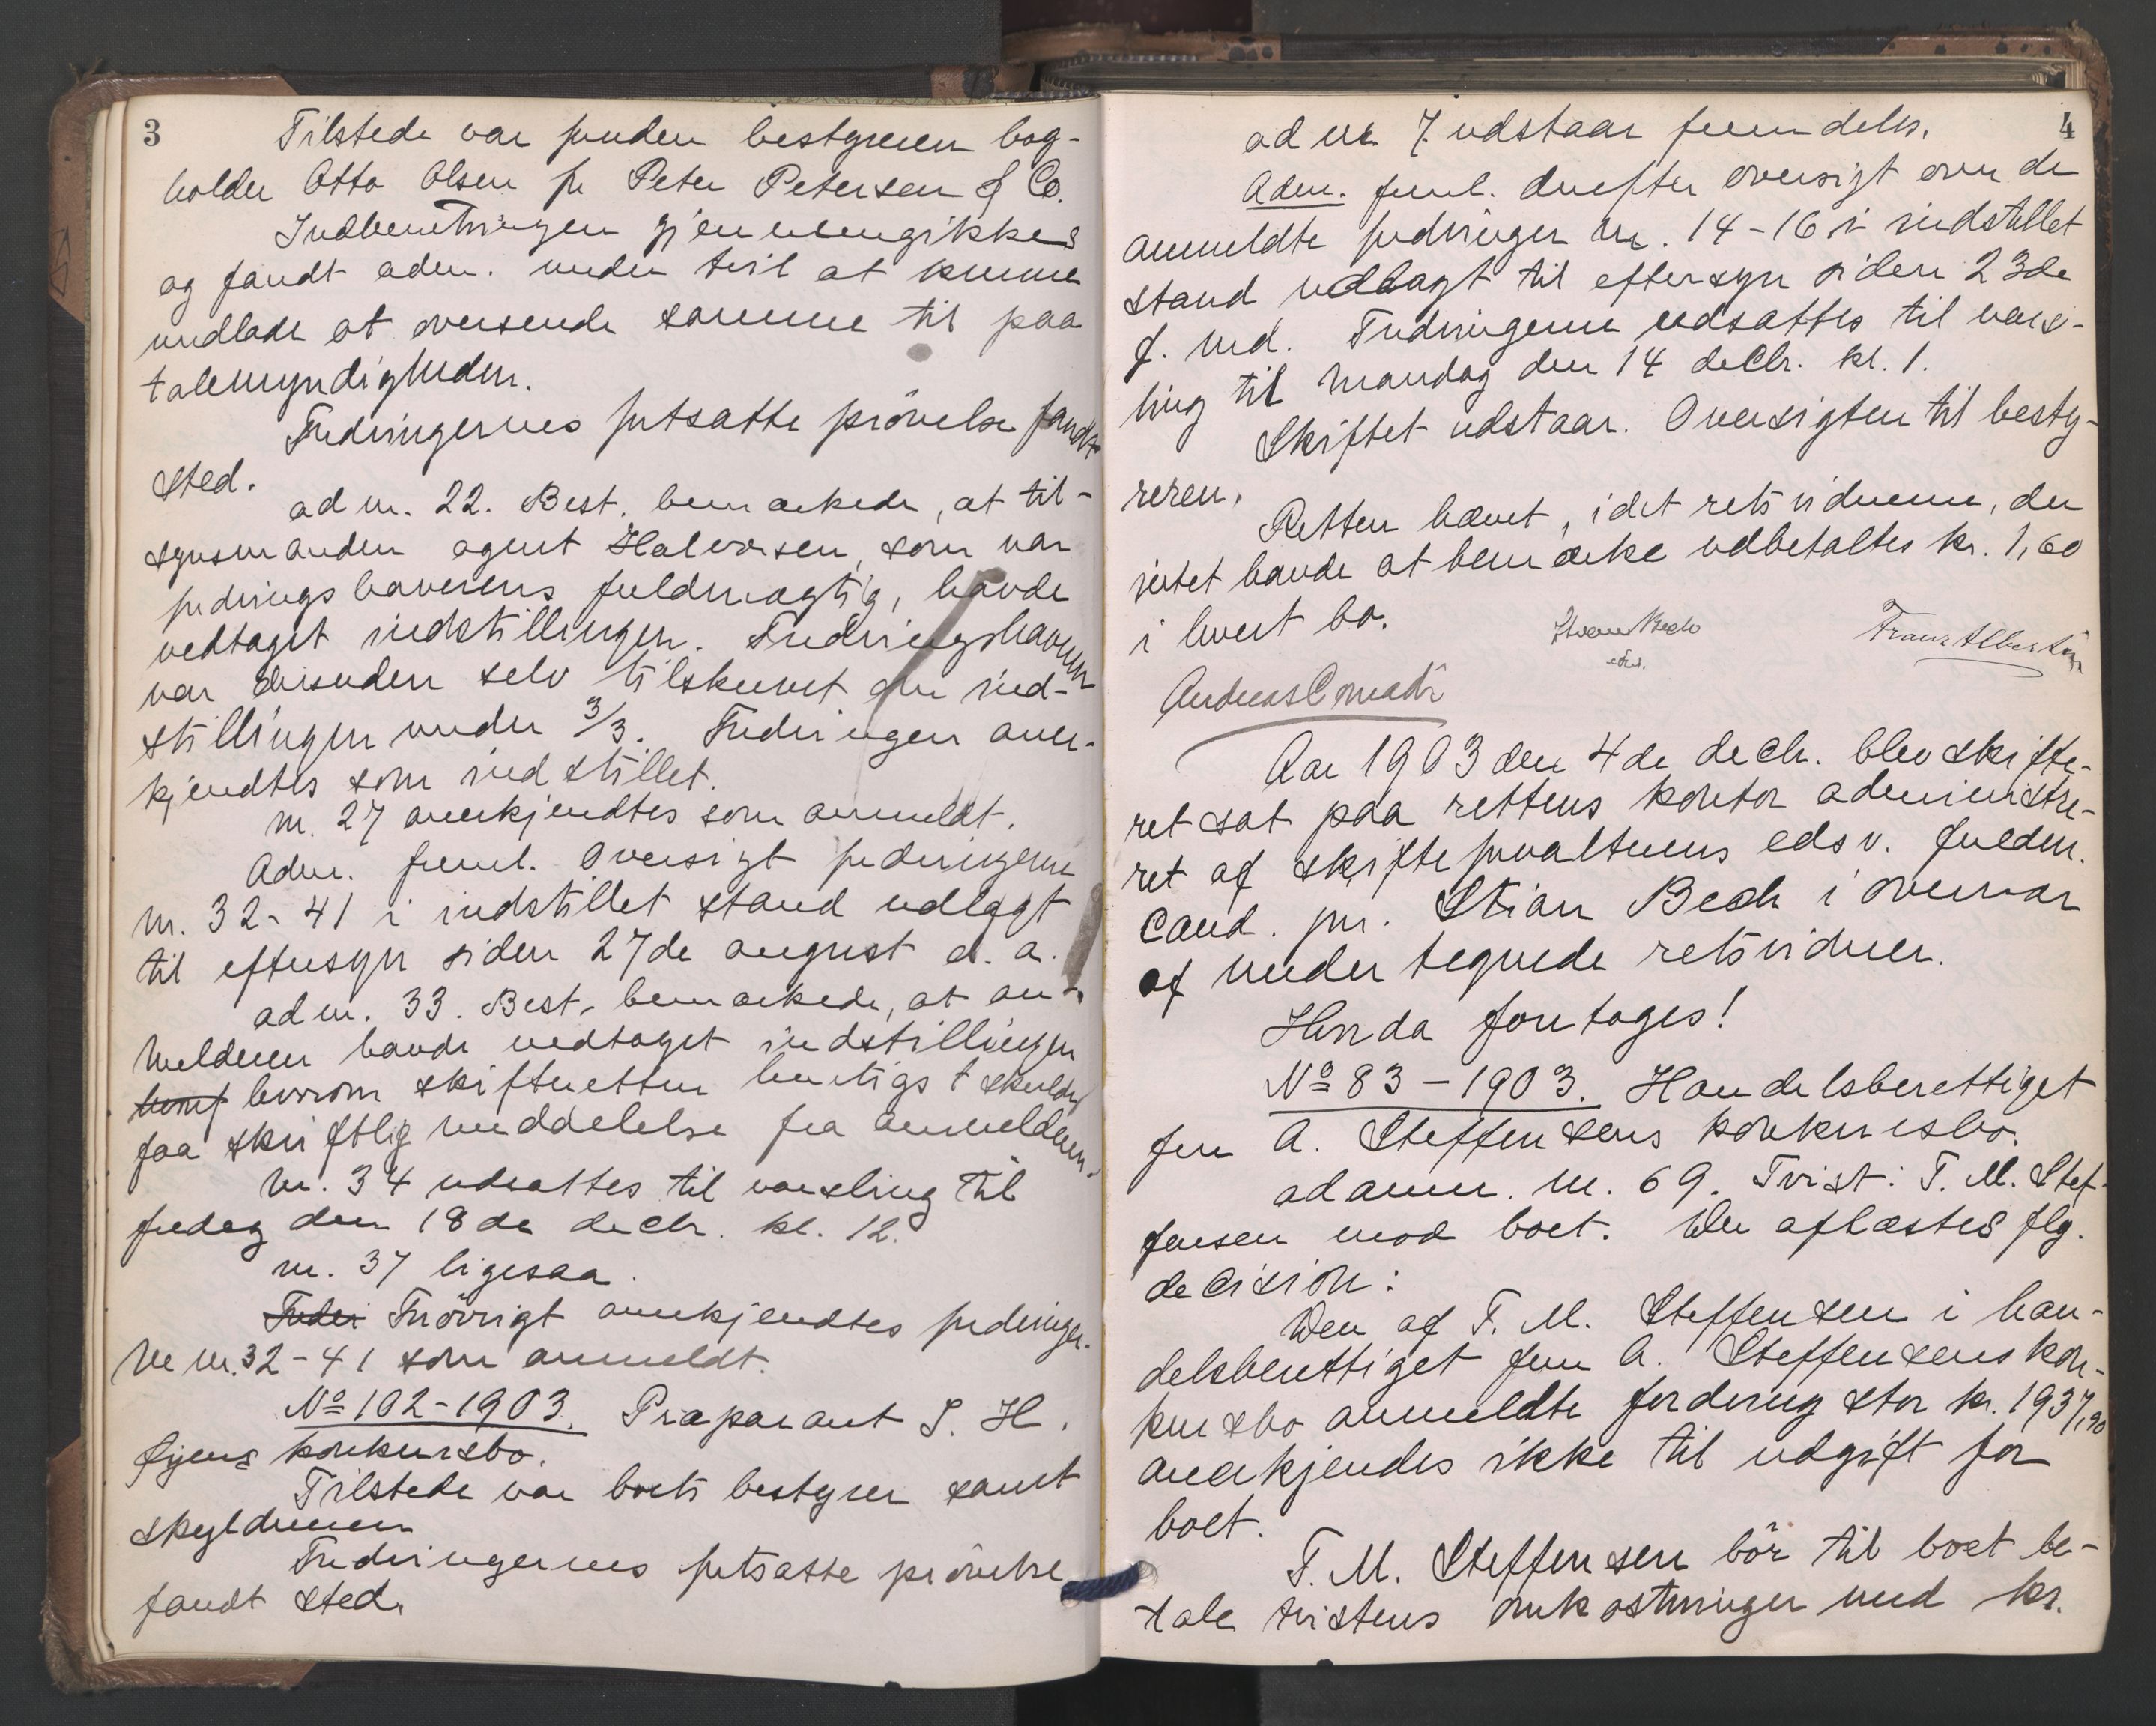 3
Tilstede var foruden bestyreren bog-
holder Otto Olsen for Peter Petersen & Co.
Indberetningen gjennemgikkes
og fandt adm. uden tvil at kunne
undlade at oversende samme til paa
talemyndigheden.
Fordringernes fortsatte prövelse fandt
sted.
ad nr. 22. Best. bemærkede, at til-
synsmanden agent Halvorsen, som var
fordringshaverens fuldmægtig, havde
vedtaget indstillingen. Fordringshaveren
var desuden selv tilskrevet om ind-
stillingen under 3/3. Fordringen aner-
kjendtes som indstillet.
nr. 27 anerkjendtes som anmeldt.
Adm. freml. oversigt fordringerne
nr. 32-41 i indstillet stand udlagt
til eftersyn siden 27de august d. a.
ad nr. 33. Best. bemærkede, at an-
melderen havde vedtaget indstillingen
hvorom skifteretten hurtigst skulde
faa skriftlig meddelelse fra anmelderen.
Nr. 34 udsattes til varsling til
fredag den 18de decbr. kl. 12.
nr. 37 ligesaa.
Fordri Forövrigt anerkjendtes fordringer-
ne nr. 32-41 som anmeldt.
No 102-1903. Præparant S. H.
konkursbo.
Tilstede var boets bestyrer samt
skyldneren
Fordringernes fortsatte prövelse
fandt sted.
4
ad nr. 7 udstaar fremdeles.
Adm. freml. derefter oversigt over de
anmeldte fordringer nr. 14-16 i indstillet
stand udlagt til eftersyn siden 23de
f. md. Fordringerne udsattes til vars-
ling til mandag den 14 decbr. kl. 1.
Skiftet udstaar. Oversigten til besty-
reren.
Retten hævet, idet retsvidnerne, der
intet havde at bemærke udbetaltes kr. 1,60
i hvert bo.
Stian Bech
eds.
Franz Albertsen
Andreas Conradi
Aar 1903 den 4de decbr. blev skifte-
ret sat paa rettens kontor administre-
ret af skifteforvalterens edsv. fuldm.
cand. jur. Stian Bech i overvær
af undertegnede retsvidner.
Hvorda foretages!
No 83-1903. Handelsberettiget
fru A. Steffensens konkursbo.
ad anm. nr. 69. Tvist: T. M. Stef-
fensen mod boet. Der aflæstes flg.
decision:
Den af T. M. Steffensen i han-
delsberettiget fru A. Steffensens kon-
kursbo anmeldte fordring stor kr. 1937,90
anerkjendes ikke til udgift for
boet.
T. M. Steffensen bör til boet be-
tale tvistens omkostninger med kr.